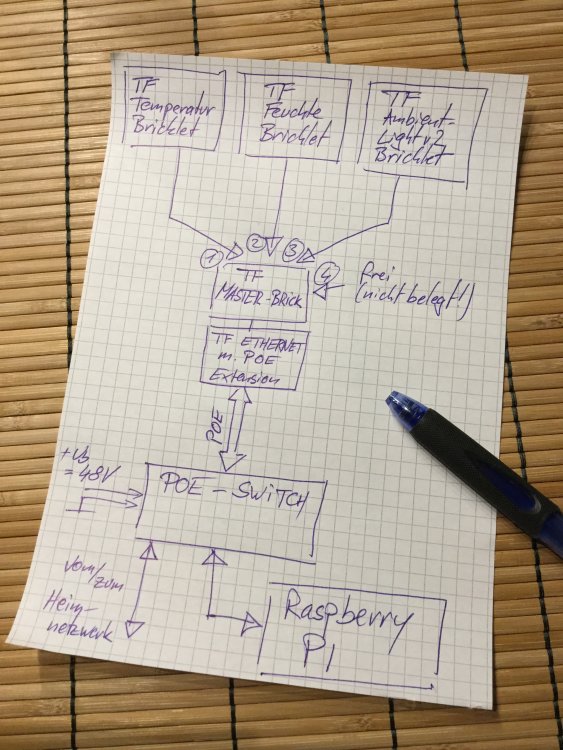 TF
Temperatur
Bricklet
TF
Feuchte
Bricklet
TF
Ambient-
Light v2
Bricklet
1
2
3
4
TF
MASTER-Brick
frei
(nicht belegt!)
TF ETHERNET
m. POE
Extension
POE
+Ub
=48V
POE - SWITCH
vom/zum
Heim-
netzwerk
Raspberry
PI